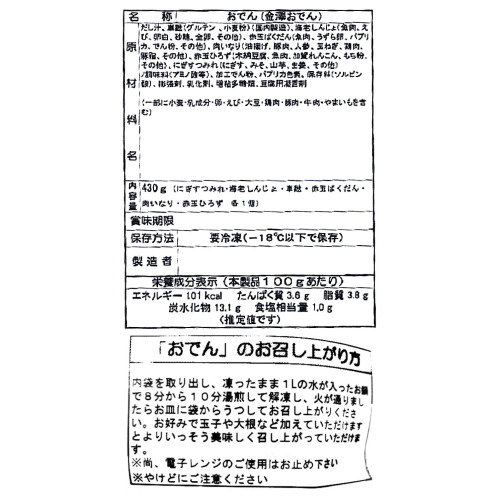 名称 おでん(金澤おでん)
原材料名
だし汁、車麩(グルテン、小麦粉)(国内製造)、海老しんじょ(魚肉、え
び、卵白、砂糖、金卵、その他)、赤玉ばくだん(魚肉、うずら卵、パプリ
カ、でん粉、その他)、肉いなり(油揚げ、豚肉、人参、玉ねぎ、鶏肉、
豚脂、その他)、赤玉ひろず(木綿豆腐、魚肉、加賀れんこん、もち粉、
その他)、にぎすつみれ(にぎす、みそ、山芋、生姜、その他)
/調味料(アミノ酸等)、加工でん粉、パプリカ色素、保存料(ソルビン
酸)、膨張剤、乳化剤、増粘多糖類、豆腐用凝固剤
(一部に小麦・乳成分・卵・えび・大豆・鶏肉・豚肉・牛肉・やまいもを含
む)
内容量 430g (にぎすつみれ・海老しんじょ・車麩・赤玉ばくだん・
肉いなり・赤玉ひろず 各1個)
賞味期限
保存方法 要冷凍(-18℃以下で保存)
製造者
栄養成分表示(本製品100gあたり)
エネルギー 101kcal たんぱく質3.6g 脂質3.8g
炭水化物13.1g 食塩相当量1.0g
(推定値です)
「おでん」のお召し上がり方
内袋を取り出し、凍ったまま1Lの水が入ったお鍋
で8分から10分湯煎して解凍し、火が通りまし
たらお皿に袋からうつしてお召し上がりくださ
い。お好みで玉子や大根など加えていただけます
とよりいっそう美味しく召し上がっていただけま
す。
※尚、電子レンジのご使用はお止め下さい
※やけどにご注意ください